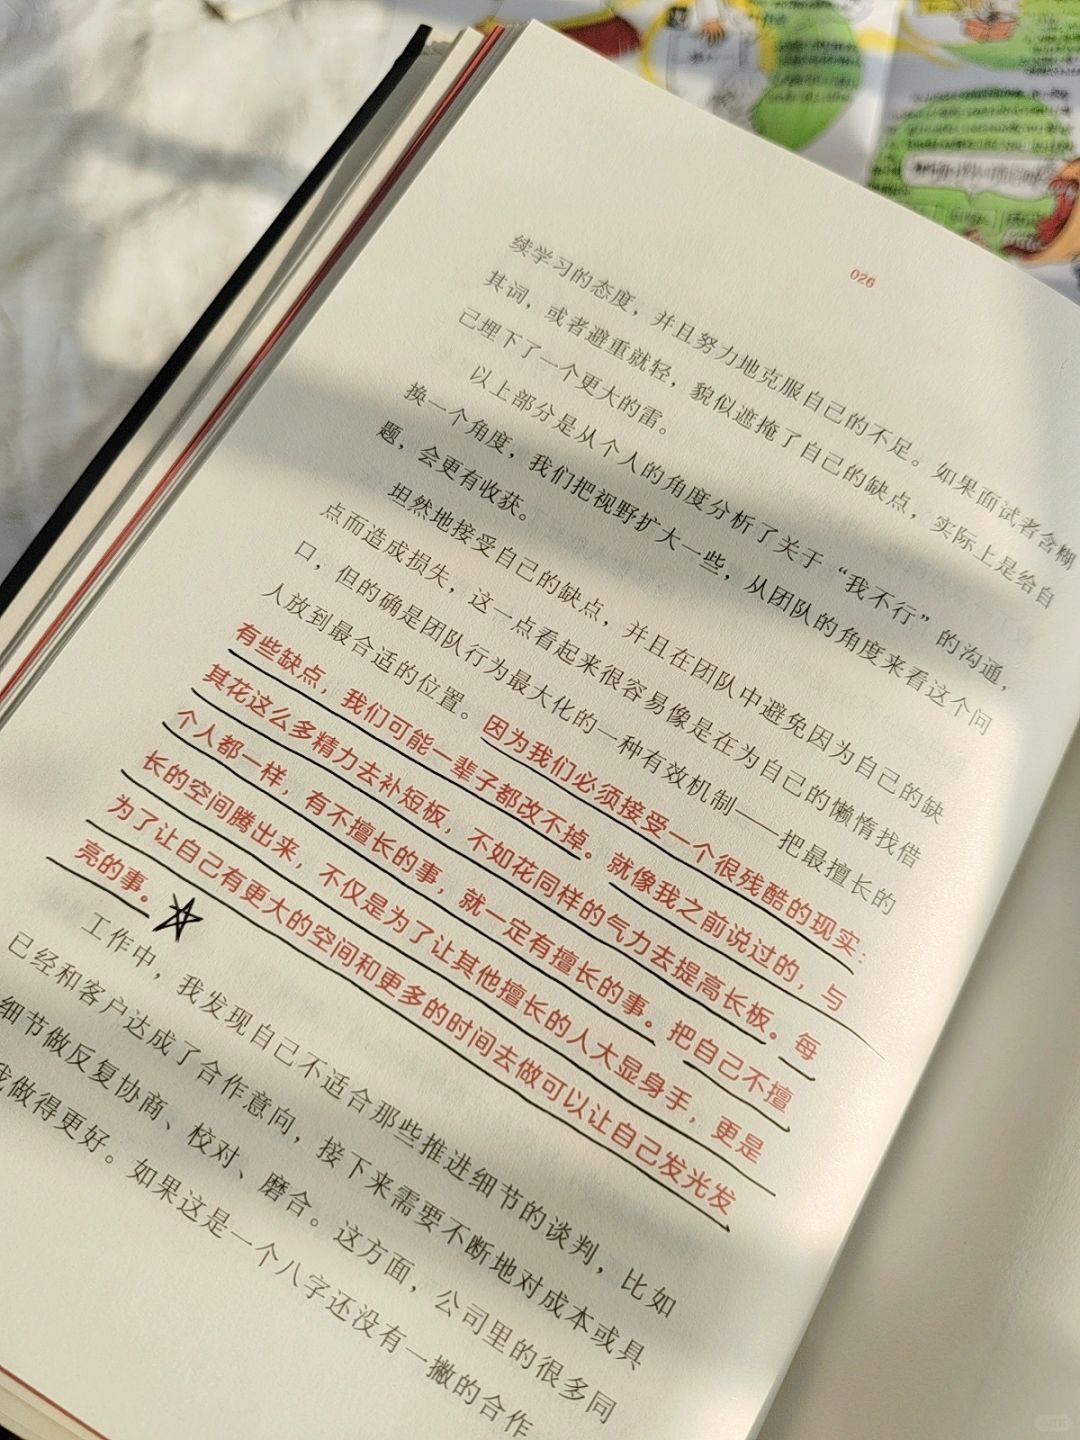 026
续学习的态度，并且努力地克服自己的不足。如果面试者含糊
其词，或者避重就轻，貌似遮掩了自己的缺点，实际上是给自
己埋下了一个更大的雷。
以上部分是从个人的角度分析了关于“我不行”的沟通，
换一个角度，我们把视野扩大一些，从团队的角度来看这个问
题，会更有收获。
坦然地接受自己的缺点，并且在团队中避免因为自己的缺
点而造成损失，这一点看起来很容易像是在为自己的懒惰找借
口，但的确是团队行为最大化的一种有效机制——把最擅长的
人放到最合适的位置。因为我们必须接受一个很残酷的现实：
有些缺点，我们可能一辈子都改不掉。就像我之前说过的，与
其花这么多精力去补短板，不如花同样的气力去提高长板。每
个人都一样，有不擅长的事，就一定有擅长的事。把自己不擅
长的空间腾出来，不仅是为了让其他擅长的人大显身手，更是
为了让自己有更大的空间和更多的时间去做可以让自己发光发
亮的事。
工作中，我发现自己不适合那些推进细节的谈判，比如
已经和客户达成了合作意向，接下来需要不断地对成本或具
细节做反复协商、校对、磨合。这方面，公司里的很多同
我做得更好。如果这是一个八字还没有一撇的合作